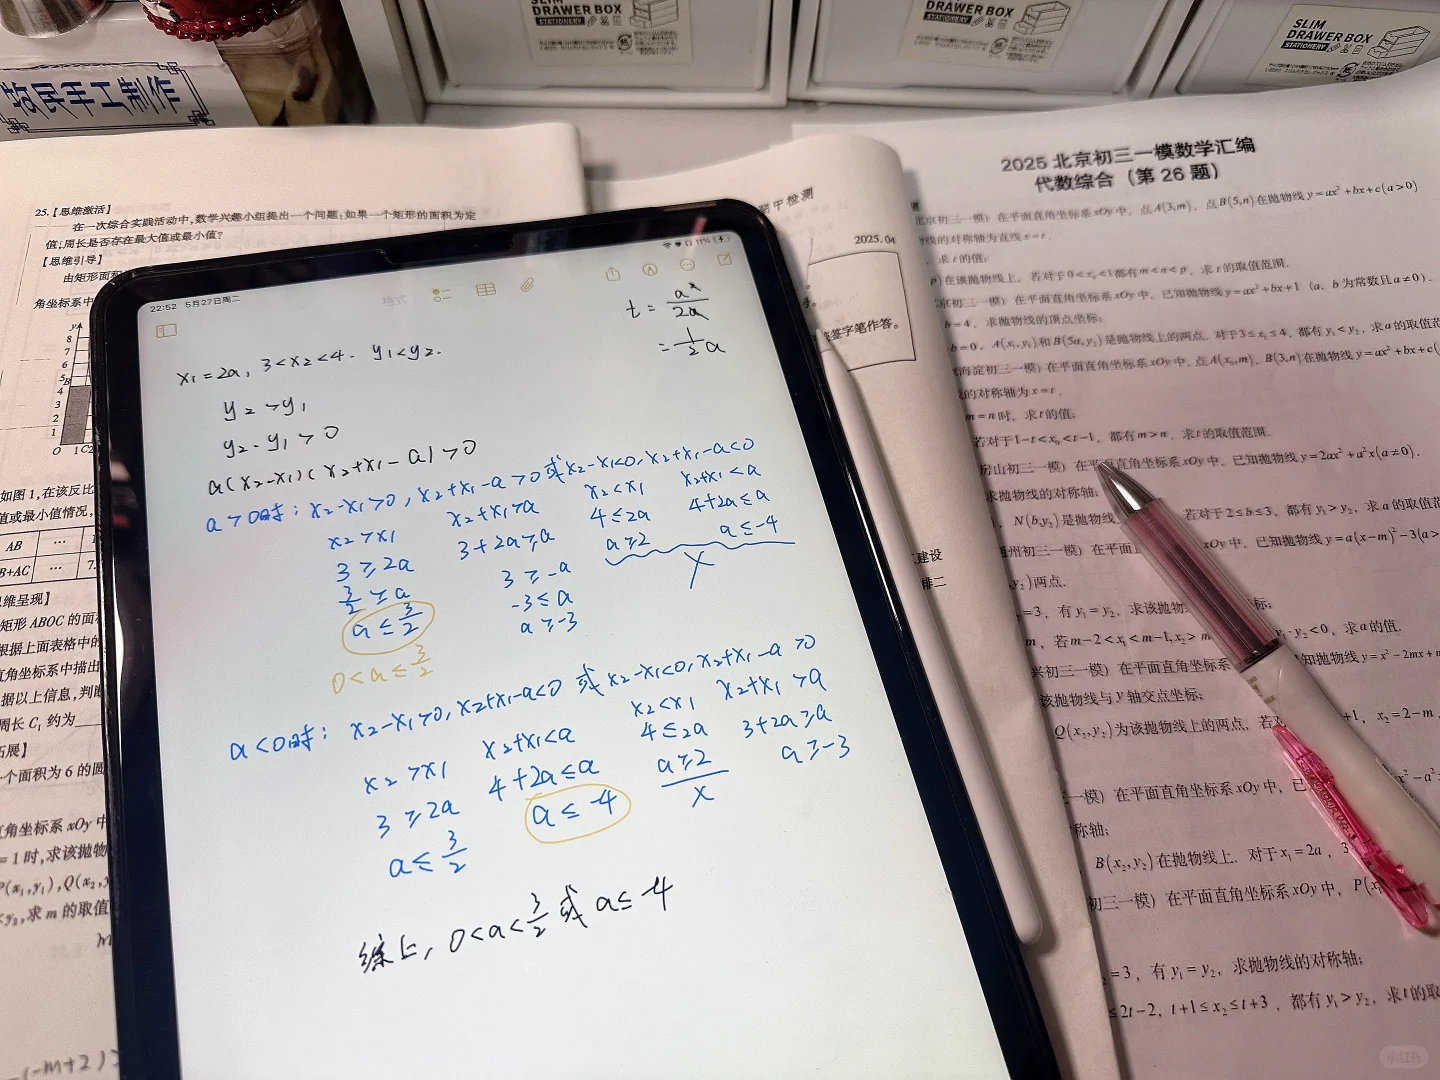 SLIM
DRAWER BOX
STATIONERY
DRAWER BOX
STATIONERY
SLIM
DRAWER BOX
STATIONERY
牧民手工制作
25.【思维激活】
在一次综合实践活动中,数学兴趣小组提出一个问题:如果一个矩形的面积为定
值;周长是否存在最大值或最小值?
【思维引导】
由矩形面积
角坐标系中
y
8
7
6
5
4
3
2
1
O 1
如图1,在该反比
值或最小值情况,
AB …
B+AC … 7.
思维呈现】
矩形 ABOC 的面
根据上面表格中的
直角坐标系中描出
据以上信息,判断
周长 C₁ 约为
拓展】
个面积为 6 的圆
直角坐标系 xOy 中
=1 时,求该抛物
P(x₁,y₁),Q(x₂,y
<y₂,求 m 的取值
(-m+2)
22:52 5月27日周二
11%
格式
t = a²/2a
= 1/2 a
x₁=2a, 3<x₂<4. y₁<y₂.
y₂>y₁
y₂-y₁>0
a(x₂-x₁)(x₂+x₁-a)>0
a>0时: x₂-x₁>0, x₂+x₁-a>0 或 x₂-x₁<0, x₂+x₁-a<0
x₂>x₁ x₂+x₁>a x₂<x₁ x₂+x₁<a
3≥2a 3+2a≥a 4≤2a 4+2a≤a
3/2≥a 3≥-a a≥2 a≤-4
a≤3/2 -3≤a ×
0<a≤3/2 a≥-3
a<0时: x₂-x₁>0, x₂+x₁-a<0 或 x₂-x₁<0, x₂+x₁-a>0
x₂>x₁ x₂+x₁<a x₂<x₁ x₂+x₁>a
3≥2a 4+2a≤a 4≤2a 3+2a≥a
a≤3/2 a≤-4 a≥2 a≥-3
×
综上, 0<a<3/2 或 a≤-4
期中检测
2025.04
签字笔作答。
建设
排二
2025 北京初三一模数学汇编
代数综合(第 26 题)
北京初三一模)在平面直角坐标系xOy中,点A(3,m),点B(5,n)在抛物线y=ax²+bx+c(a>0)
物线的对称轴为直线x=t.
求t的值;
p)在该抛物线上,若对于0<x₀<1都有m<n<p,求t的取值范围.
京初三一模)在平面直角坐标系xOy中,已知抛物线y=ax²+bx+1(a、b为常数且a≠0).
b=4,求抛物线的顶点坐标;
b=0,A(x₁,y₁)和B(5a,y₂)是抛物线上的两点.对于3≤x₁≤4,都有y₁<y₂,求a的取值范
海淀初三一模)在平面直角坐标系xOy中,点A(x₀,m),B(3,n)在抛物线y=ax²+bx+c(
的对称轴为x=t.
m=n时,求t的值;
若对于1-t<x₀<t-1,都有m>n,求t的取值范围.
房山初三一模)在平面直角坐标系xOy中,已知抛物线y=2ax²+a²x(a≠0).
求抛物线的对称轴;
,N(b,y₂)是抛物线 若对于2≤b≤3,都有y₁>y₂,求a的取值范
通州初三一模)在平面直 xOy中,已知抛物线y=a(x-m)²-3(a>
y₂)两点.
=3,有y₁=y₂,求该抛物 标;
m,若m-2<x₁<m-1,x₂>m y₁·y₂<0,求a的值.
兴初三一模)在平面直角坐标系 知抛物线y=x²-2mx+m
该抛物线与y轴交点坐标;
Q(x₂,y₂)为该抛物线上的两点,若对 +1,x₂=2-m,
一模)在平面直角坐标系xOy中,已 x²-a²
称轴;
B(x₂,y₂)在抛物线上.对于x₁=2a,3
初三一模)在平面直角坐标系xOy中,P(x
=3,有y₁=y₂,求抛物线的对称轴;
≤2t-2,t+1≤x₂≤t+3,都有y₁>y₂,求t的取
小红书